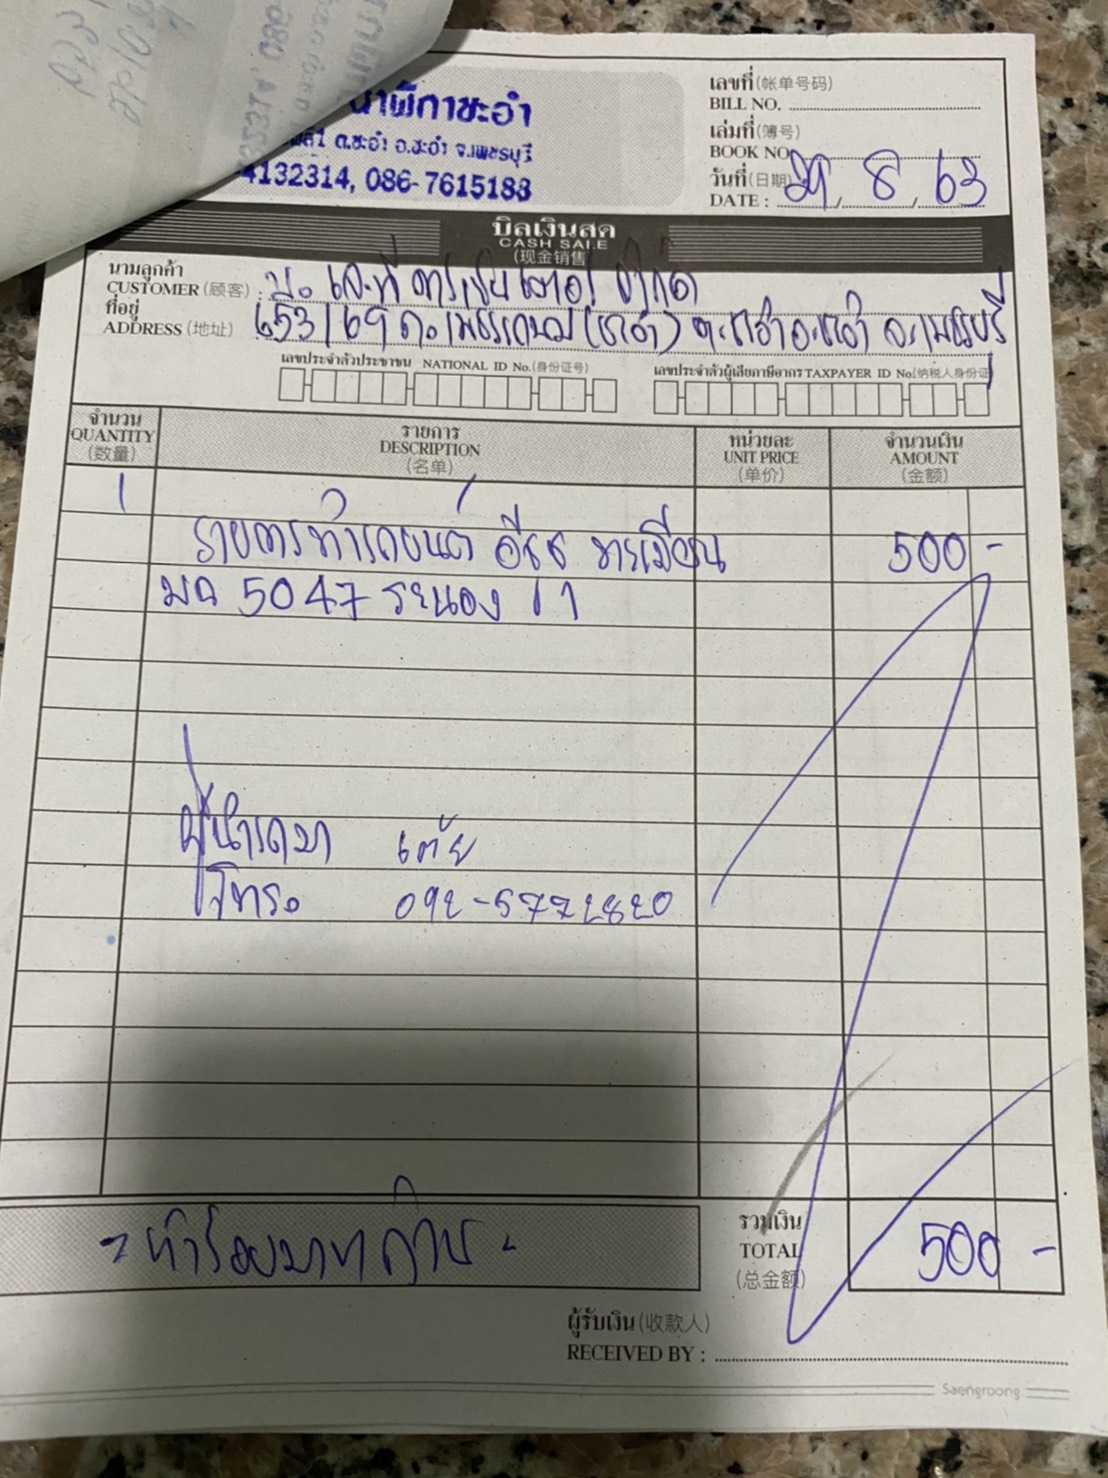 นาฬิกาชะอำ
ต.ชะอำ อ.ชะอำ จ.เพชรบุรี
4132314, 086-7615188
เลขที่ (帐单号码)
BILL NO.
เล่มที่ (簿号)
BOOK NO.
วันที่ (日期)
DATE : 29, 8, 63
บิลเงินสด
CASH SALE
(现金销售
นามลูกค้า
CUSTOMER (顾客) :
ที่อยู่
ADDRESS (地址) 653/69 ถ.เพชรเกษม (ชะอำ) ต.ชะอำ อ.ชะอำ จ.เพชรบุรี
เลขประจำตัวประชาชน NATIONAL ID No. (身份证号)
เลขประจำตัวผู้เสียภาษีอากร TAXPAYER ID No. (纳税人身份证
จำนวน
QUANTITY
(数量)
รายการ
DESCRIPTION
(名单)
หน่วยละ
UNIT PRICE
(单价)
จำนวนเงิน
AMOUNT
(金额)
1
500 -
5047 ระนอง
ผู้นำรถมา เต้ย
โทร. 092-5772820
- ห้าร้อยบาทถ้วน -
รวมเงิน
TOTAL
(总金额)
500 -
ผู้รับเงิน (收款人)
RECEIVED BY :
Saengroong